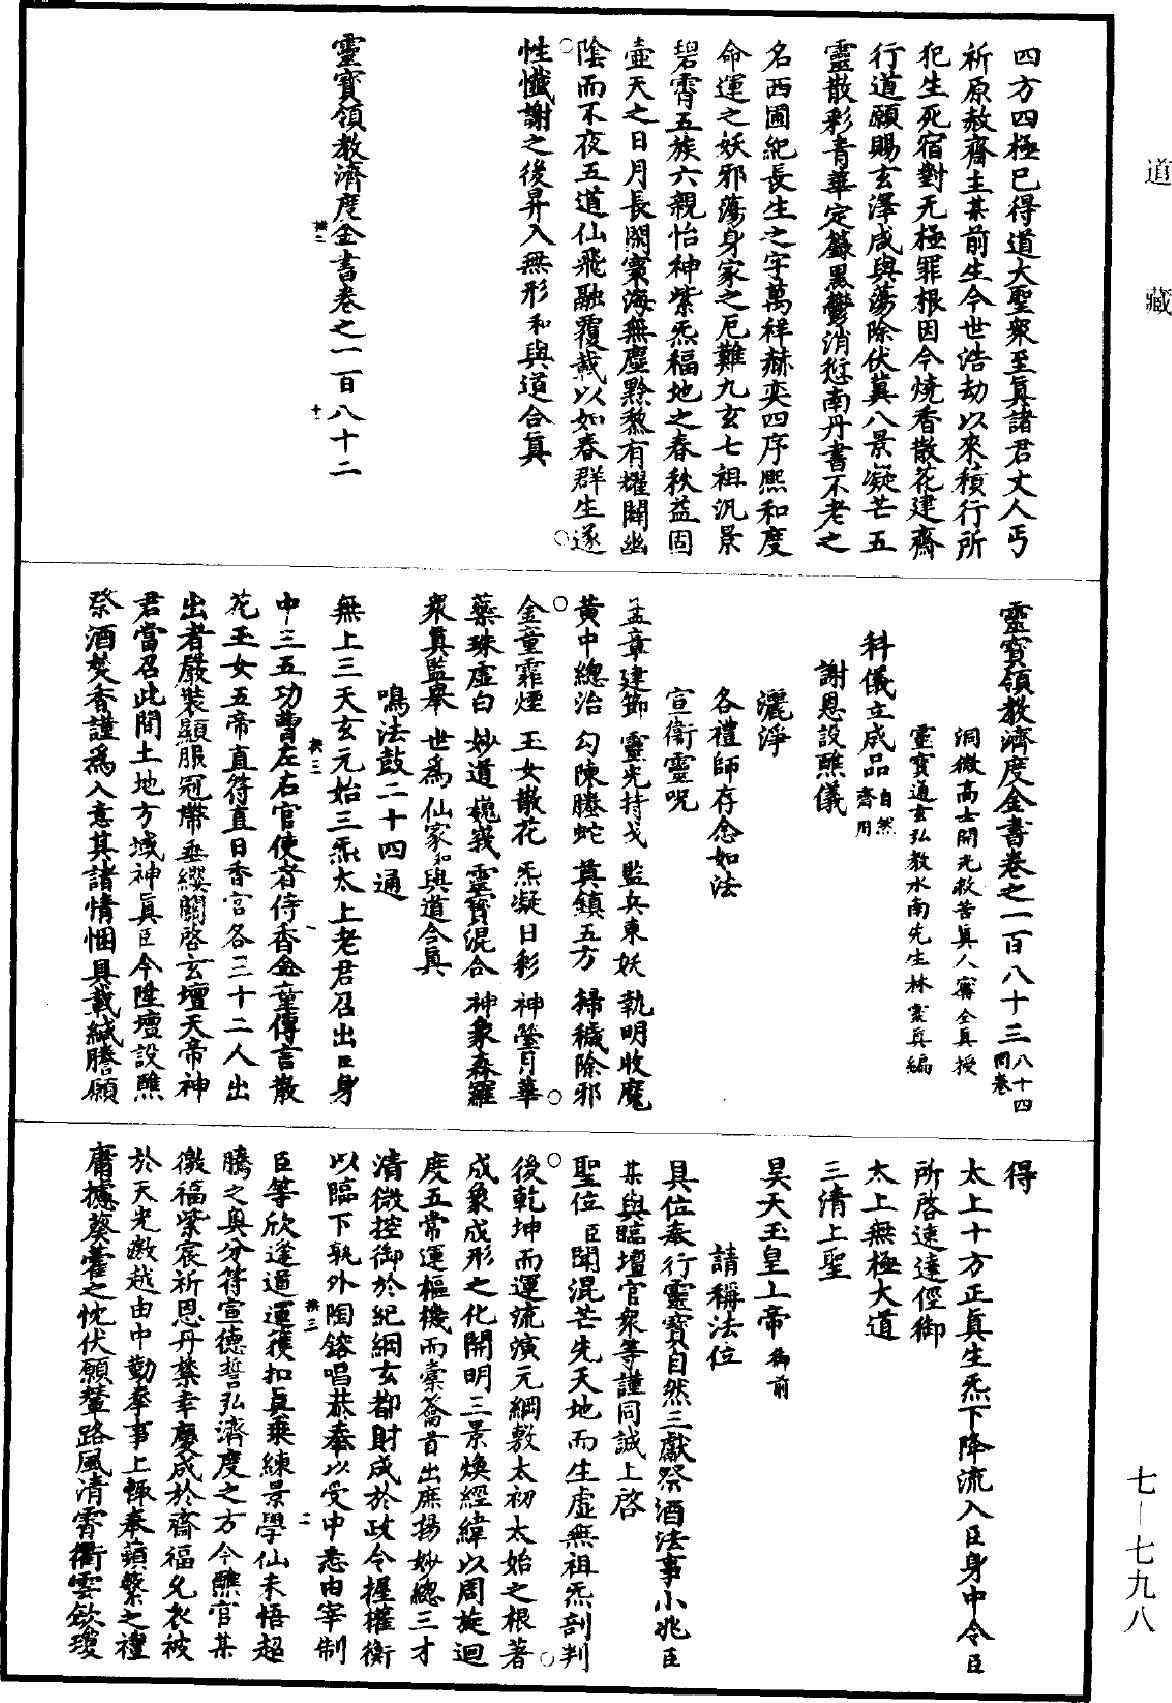 道藏
四方四極已得道大聖衆至真諸君丈人丐
祈原赦齋主某前生今世浩劫以來積行所
犯生死宿對无極罪根因今燒香散花建齋
行道願賜玄澤咸與蕩除伏冀八景凝芒五
靈散彩青華定籙黑鬱消愆南丹書不老之
名西圃紀長生之字萬祥赫奕四序熙和度
命運之妖邪蕩身家之厄難九玄七祖汎景
碧霄五族六親怡神紫炁福地之春秋益固
壼天之日月長閑寰海無塵黔黎有耀闢幽
陰而不夜五道仙飛融覆載以如春群生遂
性懺謝之後昇入無形和與道合真
靈寶領教濟度金書卷之一百八十二
靈寶領教濟度金書卷之一百八十三八十四同卷
洞微高士開光救苦真人甯全真授
靈寶通玄弘教水南先生林靈真編
科儀立成品自然齋用
謝恩設醮儀
灑淨
各禮師存念如法
宣衛靈呪
孟章建節 靈光持戈 監兵東妖 執明收魔
黃中總治 勾陳騰蛇 真鎮五方 掃穢除邪
金童霏煙 玉女散花 炁凝日彩 神瑩月華
蘂珠虛白 妙道巍峩 靈寶混合 神象森羅
衆真監舉 世為仙家和與道合真
鳴法鼓二十四通
無上三天玄元始三炁太上老君召出臣身
中三五功曹左右官使者侍香金童傳言散
花玉女五帝直符直日香官各三十二人出
出者嚴裝顯服冠帶垂纓關啓玄壇天帝神
君當召此間土地方域神真臣今陞壇設醮
祭酒焚香謹為入意其諸情悃具載緘謄願
得
太上十方正真生炁下降流入臣身中令臣
所啓速達徑御
太上無極大道
三清上聖
昊天玉皇上帝御前
請稱法位
具位奉行靈寶自然三獻祭酒法事小兆臣
某與臨壇官衆等謹同誠上啓
聖位臣聞混芒先天地而生虛無祖炁剖判
後乾坤而運流演元綱敷太初太始之根著
成象成形之化開明三景煥經緯以周旋迴
度五常運樞機而橐籥首出庶揚妙總三才
清微控御於紀綱玄都財成於政令握權衡
以臨下孰外陶鎔唱恭奉以受中悉由宰制
臣等欣逢遒運獲扣真乘練景學仙未悟超
騰之奧分符宣德誓弘濟度之方今醮官某
徼福紫宸祈恩丹禁幸慶成於齋福允衣被
於天光激越由中勤奉事上輒奉蘋蘩之禮
庸攄葵藿之忱伏願輦路風清霄衢雲斂瓊
七—七九八